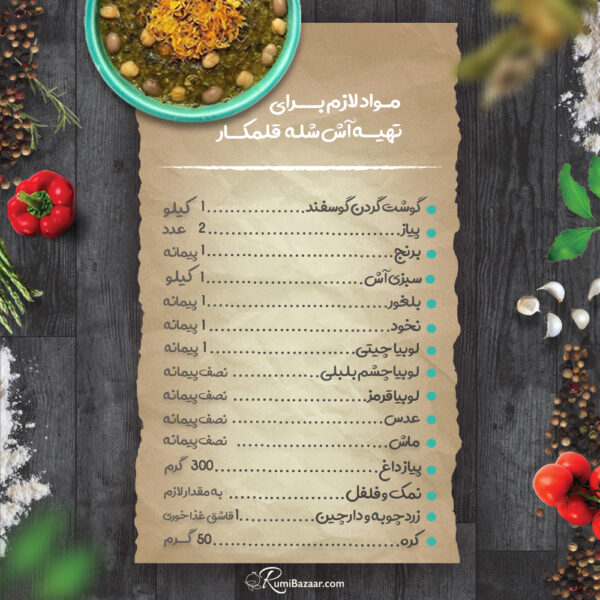 مواد لازم برای
تهیه آش شله قلمکار
گوشت گردن گوسفند................1 کیلو
پیاز......................2 عدد
برنج......................1 پیمانه
سبزی آش................1 کیلو
بلغور......................1 پیمانه
نخود......................1 پیمانه
لوبیا چیتی................1 پیمانه
لوبیا چشم بلبلی............نصف پیمانه
لوبیا قرمز................نصف پیمانه
عدس......................نصف پیمانه
ماش......................نصف پیمانه
پیاز داغ................300 گرم
نمک و فلفل................به مقدار لازم
زردچوبه و دارچین............1 قاشق غذاخوری
کره......................50 گرم
RumiBazaar.com